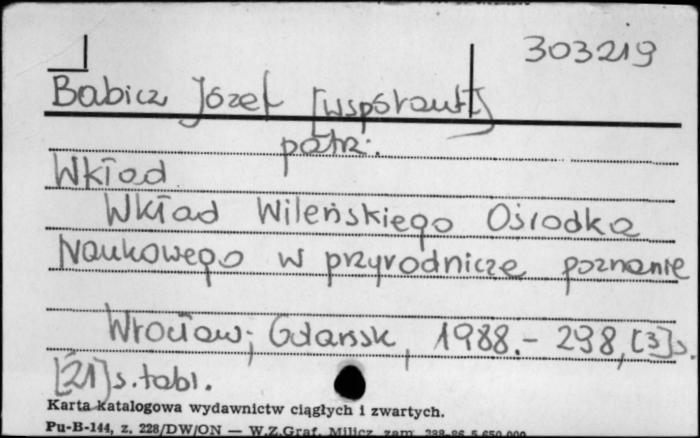 303219
Babicz Józef [współaut.]
patrz:
Wkład
Wkład Wileńskiego Ośrodka
Naukowego w przyrodnicze poznanie
Wrocław; Gdańsk, 1988. - 298, [3] s.
[21] s. tabl.
Karta katalogowa wydawnictw ciągłych i zwartych.
Pu-B-144, z. 228/DW/ON — W.Z.Graf. Milicz zam. 288-86 5.650.000